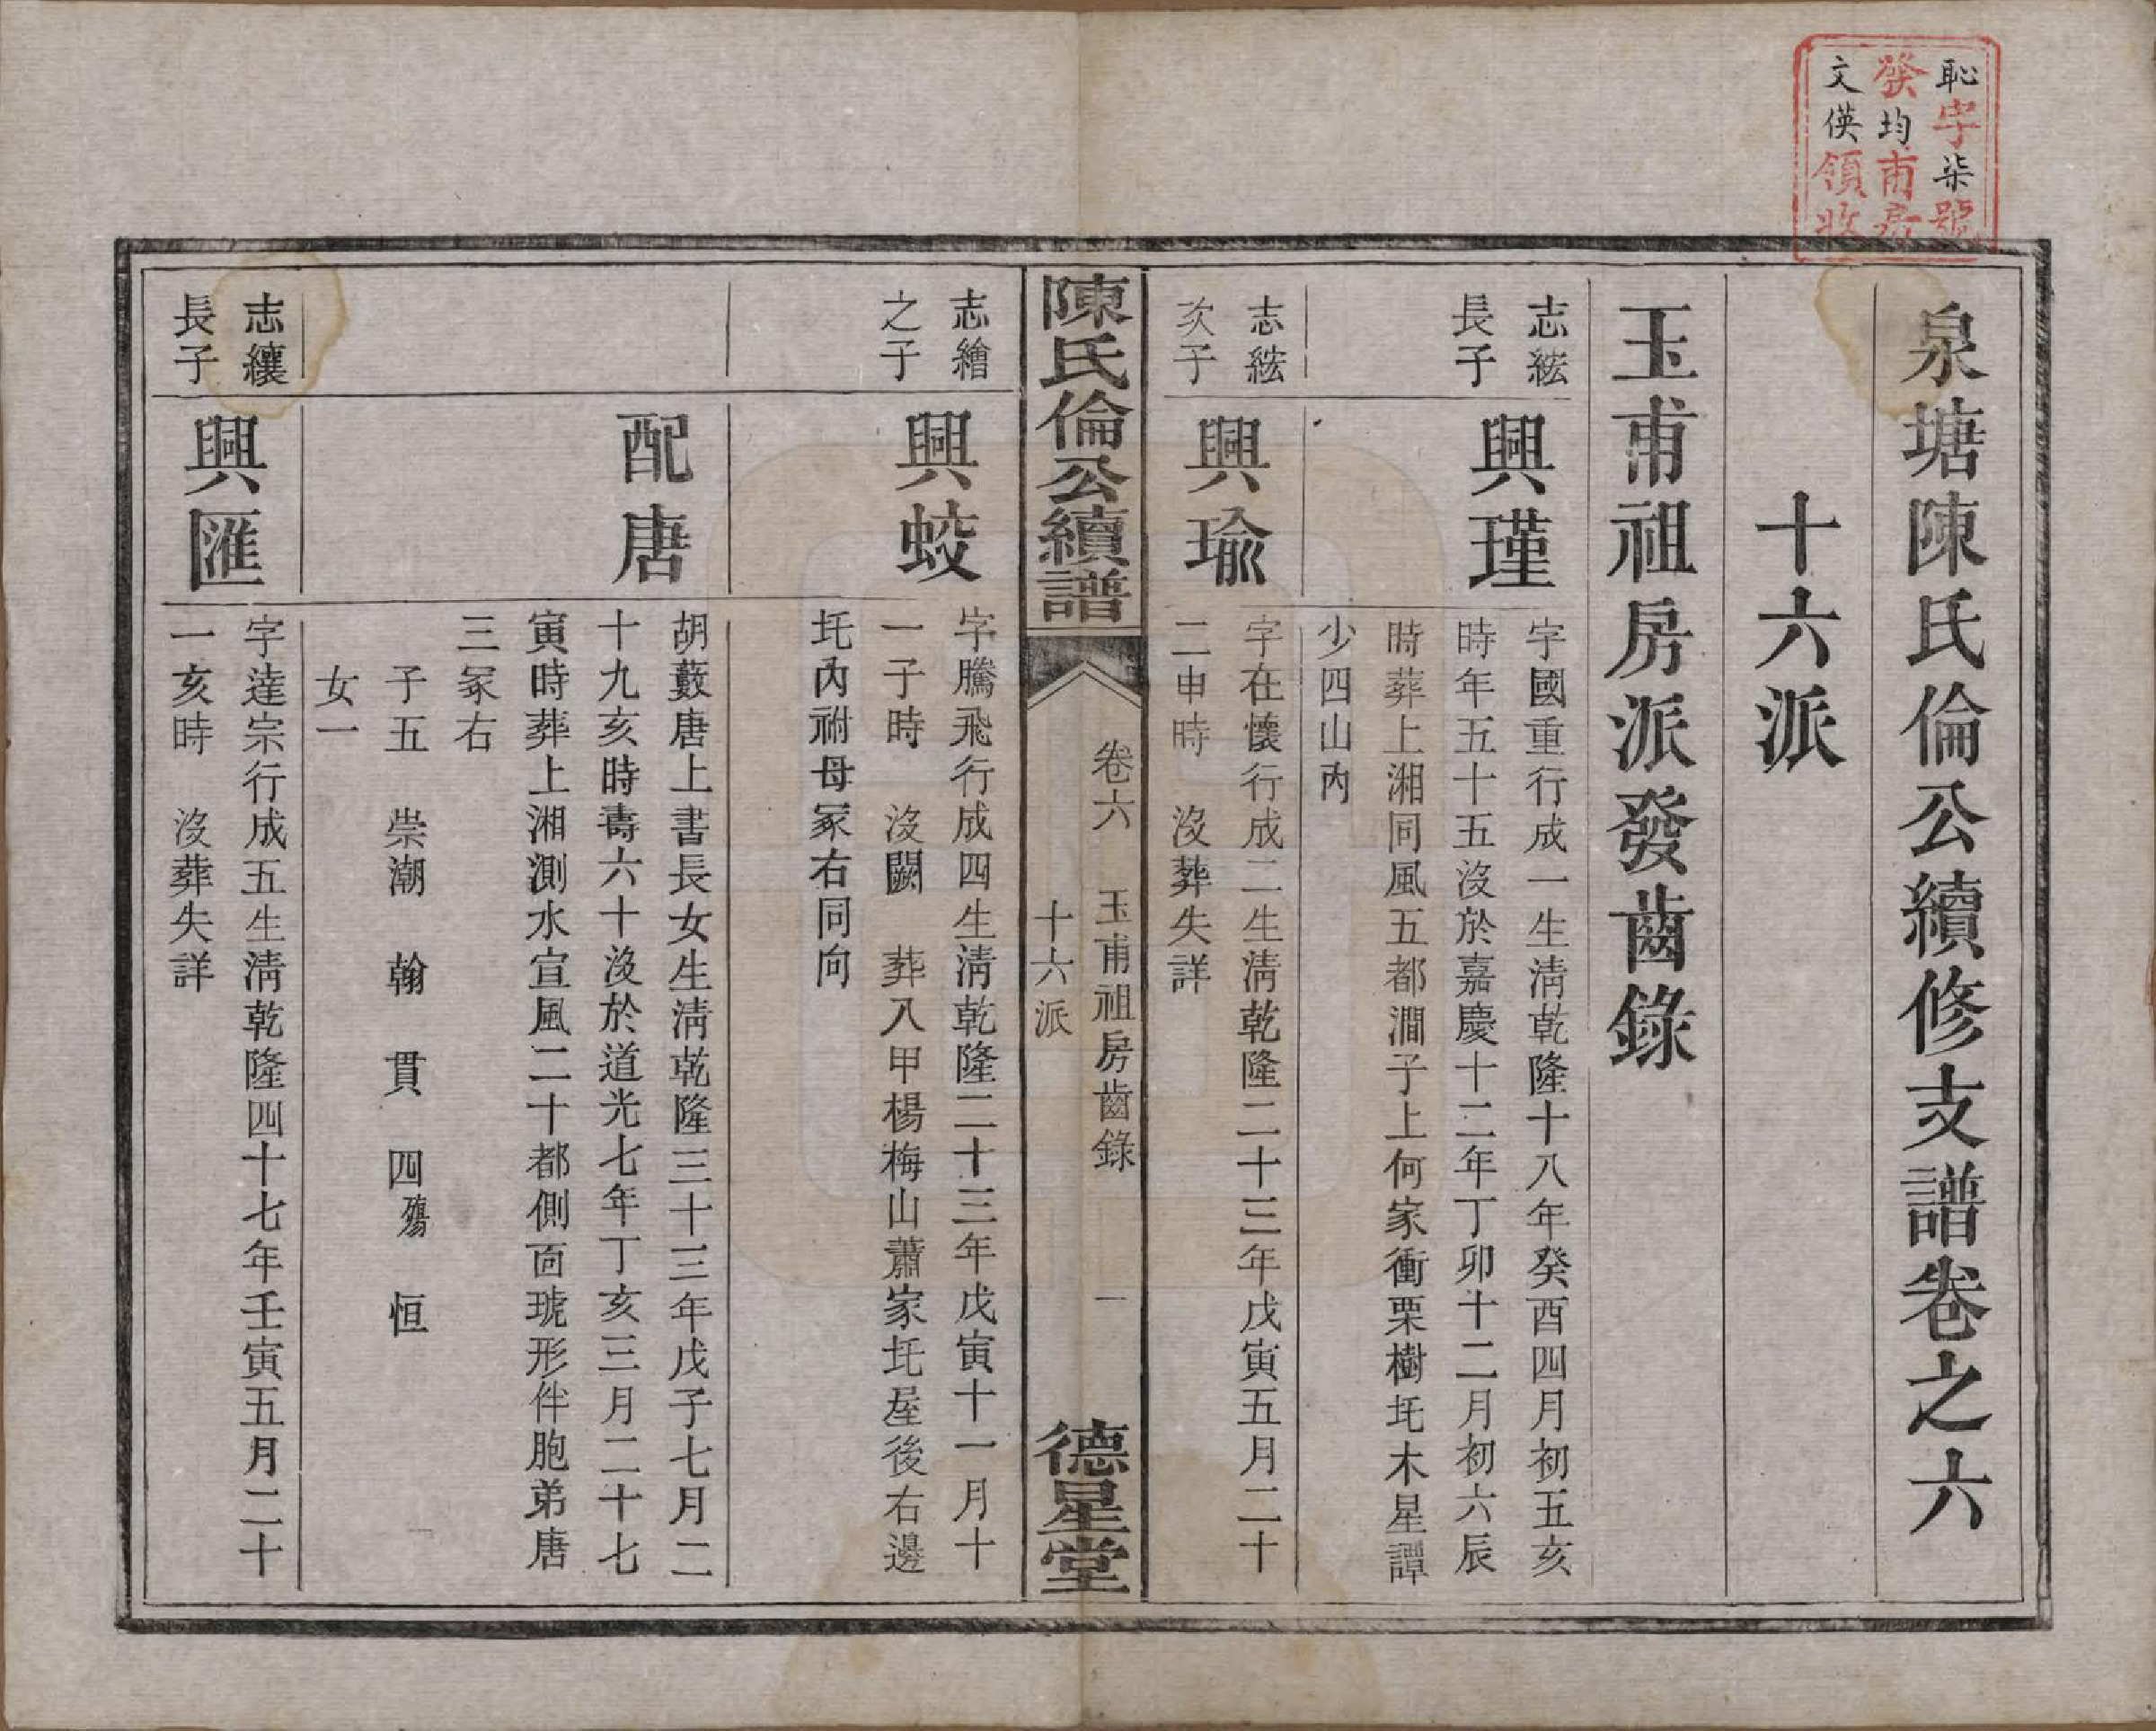 恥字柒號
發均甫房
文偀領收
泉塘陳氏倫公續修支譜卷之六
十六派
玉甫祖房派發齒錄
志紘
長子
興瑾
字國重行成一生淸乾隆十八年癸酉四月初五亥
時年五十五沒於嘉慶十二年丁卯十二月初六辰
時葬上湘同風五都澗子上何家衝栗樹圫木星譚
少四山內
志紘
次子
興瑜
字在懷行成二生淸乾隆二十三年戊寅五月二十
二申時 沒葬失詳
陳氏倫公續譜
卷六 玉甫祖房齒錄 一
十六派
德星堂
志繪
之子
興蛟
字騰飛行成四生淸乾隆二十三年戊寅十一月十
一子時 沒闕 葬入甲楊梅山蕭家圫屋後右邊
圫內祔母冢右同向
配唐
胡藪唐上書長女生淸乾隆三十三年戊子七月二
十九亥時壽六十沒於道光七年丁亥三月二十七
寅時葬上湘測水宣風二十都側面琥形伴胞弟唐
三冢右
子五 崇潮 翰 貫 四殤 恒
女一
志纕
長子
興匯
字達宗行成五生淸乾隆四十七年壬寅五月二十
一亥時 沒葬失詳